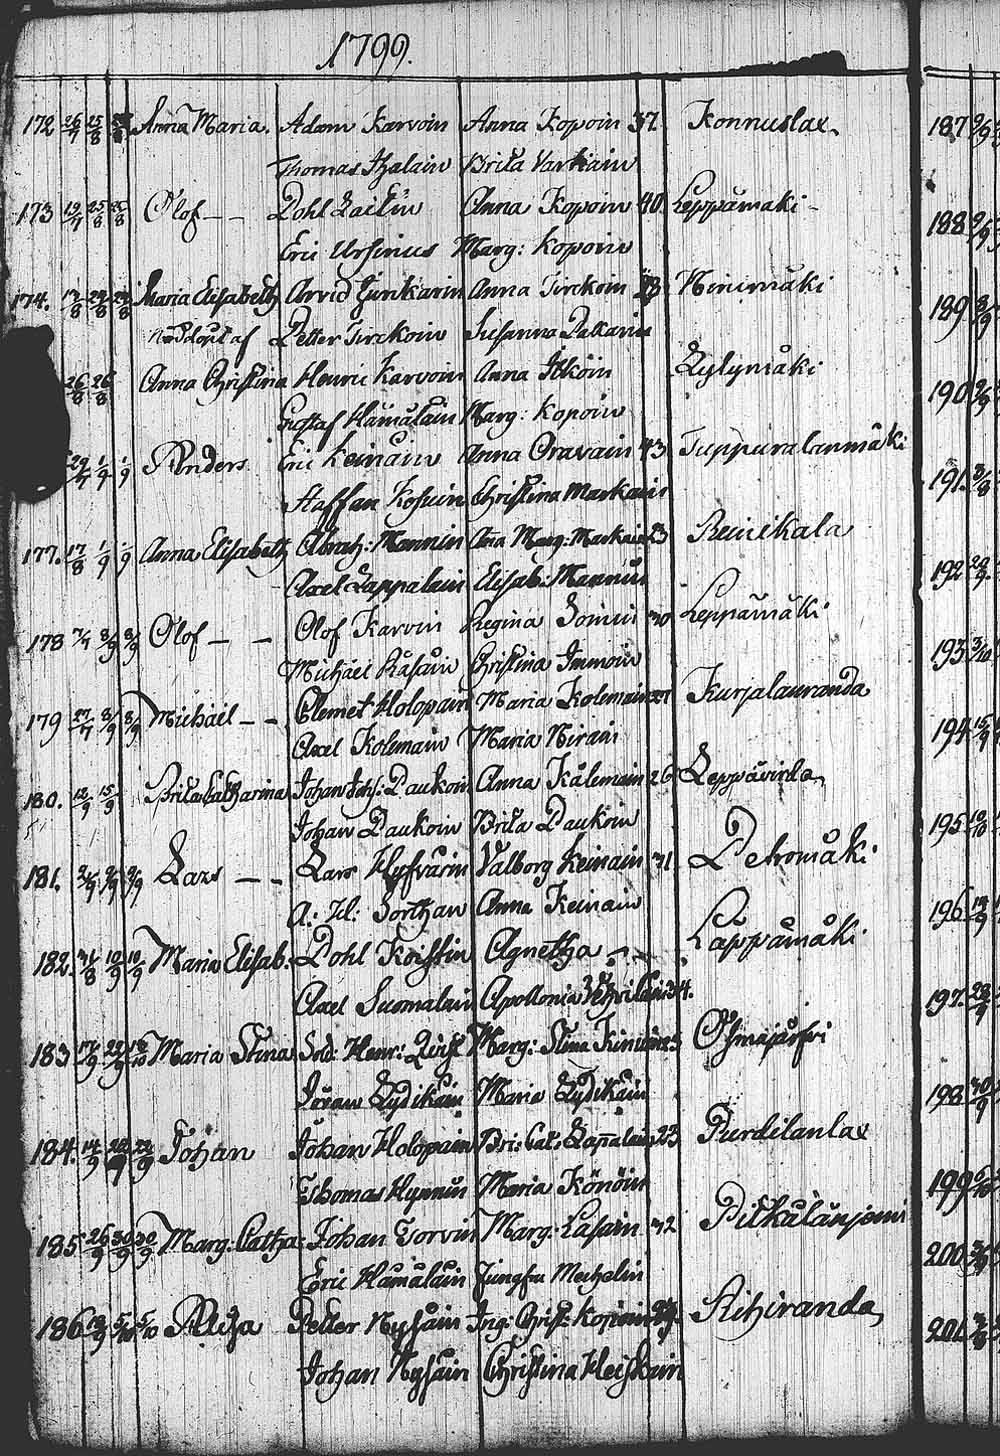 1799.
172 26/7 25/8 Anna Maria. Adam Karvoin Anna Kopoin 37. Konnuslax. 187
Thomas Ihalain Brita Vartiain
173 19/7 25/8 25/8 Olof — — Pohl Laitin Anna Kopoin 40. Leppämäki — 188
Eric Ursinus Marg: Kopoin
174. Maria Elisabeth Arvid Anna Tirckoin Ninimäki 189
Nöddöpt af Petter Tirckoin Susanna Pekarin
26/8 26/8 Anna Christina Henric Karvoin Anna Itköin 190
Gustaf Hämäläin Marg: Kopoin
29/7 1/9 1/9 Anders Eric Keinäin Anna Oravain 43 Tuppuralanmäki 191.
Staffan Kosuin Christina Markain
177. 17/8 1/9 /9 Anna Elisabeth Abrah: Mannin Ana Marg: Markain 23 Reinikala 192
Axel Lappalain Elisab: Mannin
178 7/7 8/9 8/9 Olof — — Olof Karvin Regina Somin 30 Leppämäki 193
Michael Räsäin Christina Immoin
179 27/7 8/9 8/9 Michaël — — Clemet Holopain Maria Kolemain 27 Kurjalanranda 194
Axel Kolemain Maria Nirain
180. 12/9 15/9 Brita Catharina Johan Joh: Paukoin Anna Kålemain 26 Leppävirda 195
Johan Paukoin Brita Paukoin
181. Lars — — Lars Hyfvärin Valborg Keinäin 31 Petromäki 196
A: H: Sorthan Anna Keinäin
182. 31/8 10/9 10/9 Maria Elisab: Pohl Koistin Agnetha Läppämäki 197.
Axel Suomalain Apollonia 34.
183 17/9 22/9 Maria Stina Sold: Henr: Qvist Marg: Stina Osmajärfvi
Jöran Lydikäin Maria Lydikäin 198
184. 14/9 22/9 22/9 Johan Johan Holopain Bri: Cat: Lappalain 23 Purdilanlax
Thomas Hynnin Maria Könöin 199
185 26/9 30/9 30/9 Marg: Catha: Johan Torvin Marg: Lasain 32 Pitkälänjemi 200
Eric Hämäläin Jungfru Mechelin
186 5/10 5/10 Alexa Petter Nysäin Ing: Christ: Kopoin Rihiranda 201
Johan Nysäin Christina Heiskain